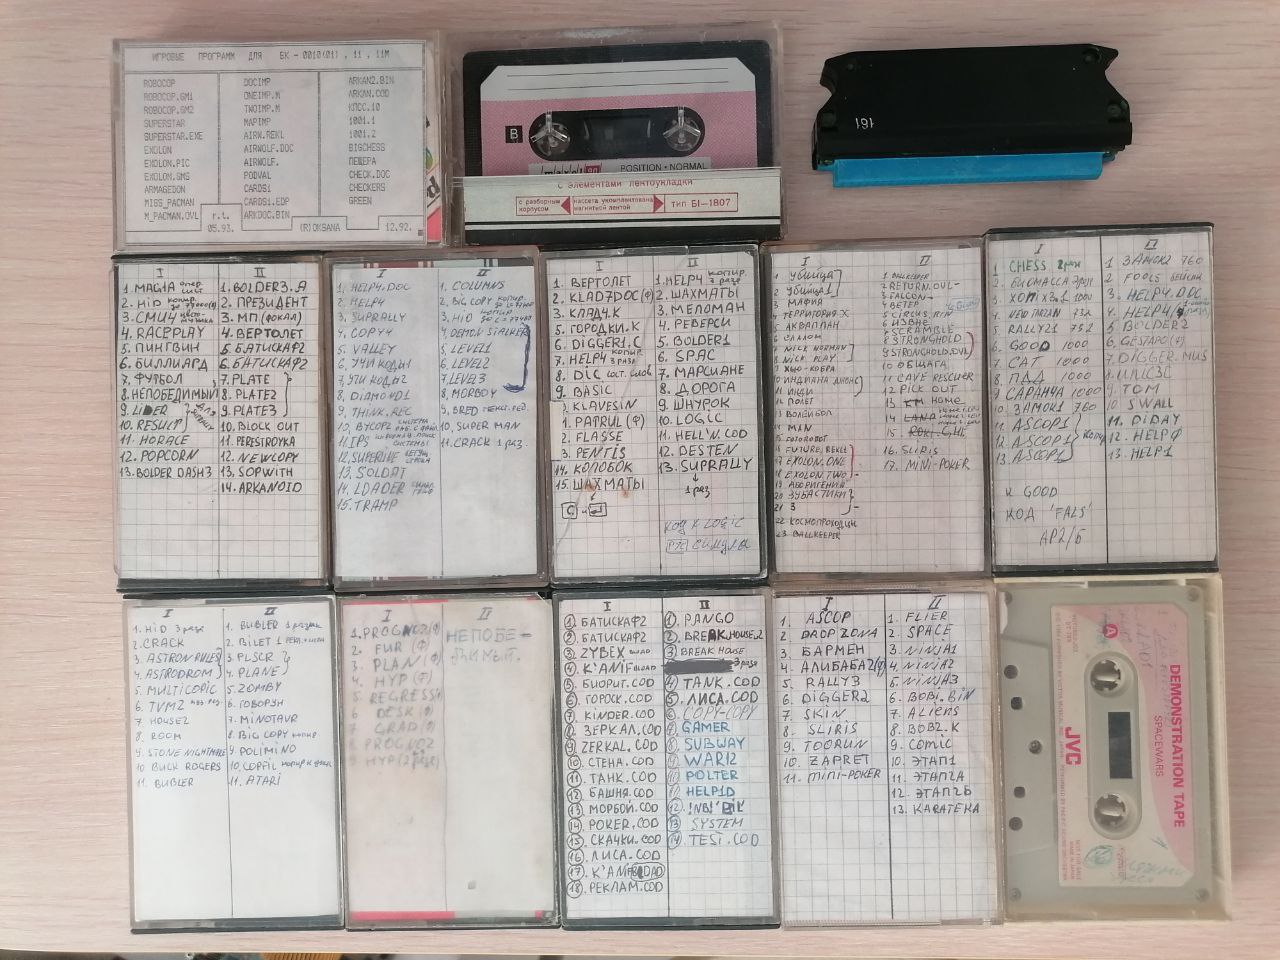 ИГРОВЫЕ ПРОГРАММ ДЛЯ БК-0010(01), 11, 11М
ROBOCOP
ROBOCOP.GM1
ROBOCOP.GM2
SUPERSTAR
SUPERSTAR.EXE
EXOLON
EXOLON.PIC
EXOLON.GMS
ARMAGEDON
MISS_PACMAN
M_PACMAN.OVL
DOCIMP
ONEIMP.M
TWOIMP.M
MAPIMP
AIRW.REKL
AIRWOLF.DOC
AIRWOLF.
PODVAL
CARDS1
CARDS1.EDP
ARKDOC.BIN
ARKAN2.BIN
ARKAN.COD
КПСС.10
1001.1
1001.2
BIGCHESS
ПЕЩЕРА
CHECK.DOC
CHECKERS
GREEN
r.t.
05.93.
(R)OKSANA
12.92.
B
POSITION • NORMAL
с элементами лентоукладки
с разборным корпусом
кассета укомплектована магнитной лентой
тип БI-1807
161
I
1. MAGIA
2. HID копир.
3. СМИЧ
4. RACEPLAY
5. ПИНГВИН
6. БИЛЛИАРД
7. ФУТБОЛ
8. НЕПОБЕДИМЫЙ
9. LIDER
10. RESULT
11. HORACE
12. POPCORN
13. BOLDER DASH3
II
1. BOLDER3.A
2. ПРЕЗИДЕНТ
3. МП (ФОКАЛ)
4. ВЕРТОЛЕТ
5. БАТИСКАФ2
6. БАТИСКАФ2
7. PLATE
8. PLATE2
9. PLATE3
10. BLOCK OUT
11. PERESTROYKA
12. NEWCOPY
13. SOPWITH
14. ARKANOID
I
1. HELP4.DOC
2. HELP4
3. SUPRALLY
4. COPY4
5. VALLEY
6. УЧИ КОДЫ1
7. УЧИ КОДЫ2
8. DIAMOND1
9. THINK.REC
12. SUPERLIVE
13. SOLDAT
14. LOADER
15. TRAMP
II
1. COLUMNS
2. BIG COPY копир.
3. HID копир
4. DEMON STALKER
5. LEVEL1
6. LEVEL2
7. LEVEL3
8. MORBOY
10. SUPER MAN
11. CRACK 1 раз.
I
1. ВЕРТОЛЕТ
2. KLAD7DOC(Ф)
3. КЛАД4.К
5. ГОРОДКИ.К
6. DIGGER1.C
7. HELP4 копир. 3 раза
8. DIC сост. слов
9. BASIC
KLAVESIN
1. PATRUL (Ф)
2. FLASSE
3. PENTIS
14. КОЛОБОК
15. ШАХМАТЫ
II
1. HELP4 копир. 2 раза
2. ШАХМАТЫ
3. МЕЛОМАН
4. РЕВЕРСИ
5. BOLDER1
6. SPAC
7. МАРСИАНЕ
8. ДОРОГА
9. ШНУРОК
10. LOGIC
11. HELL'N.COD
12. DESTEN
13. SUPRALLY
1 раз
КОД К LOGIC
I
1. УБИЙЦА
2. УБИЙЦА1
3. МАФИЯ
4. ТЕРРИТОРИЯ
5. АКВАПЛАН
6. СЛАЛОМ
7. NICK NORMAN
8. NICK PLAY
9. КЬЮ-КОБРА
10. ИНДИАНА ДЖОНС
11. ИНДИ
12. ПОЛЕТ
13. ВОЛЕЙБОЛ
14. MAN
15. FOTOROBOT
16. FUTURE.REKL
17. EXOLON.ONE
18. EXOLON.TWO
19. АБОРИГЕНИЯ
20. ЗУБАСТИКИ
21. 3
22. КОСМОПРОХОДИЦ
23. BALLKEEPER
II
1. BALLKEEPER
2. RETURN.OVL
3. FALCON
4. ВЕТЕР
5. CIRCUS.BIN
6. ИЗВНЕ
7. SCRAMBLE
8. STRONGHOLD
9. STRONGHOLD.OVL
10. ОБЩАГА
11. CAVE RESCUER
12. PICK OUT
16. SLIRIS
17. MINI-POKER
I
CHESS 2 раза
2. БИОМАССА
3. ХОПИ 1000
4. NEW TARZAN
5. RALLY21
6. GOOD 1000
7. CAT 1000
8. ПДД 1000
9. САРАНЧА 1000
10. ЗАМОК1 760
11. ASCOP1
12. ASCOP1
13. ASCOP1
К GOOD
КОД 'FALS'
АР2/Б
II
1. ЗАМОК2 760
2. FOOLS
3. HELP4.DOC
4. HELP4
5. BOLDER2
6. GESTAPO(Ф)
7. DIGGER.MUS
9. ТОМ
10. SWALL
11. DIDAY
12. HELPФ
13. HELP1
I
1. HID 3 раза
2. CRACK
3. ASTRON RULES
4. ASTRODROM
5. MULTICOPIC
6. TVM2
7. HOUSE2
8. ROOM
9. STONE NIGHTMARE
10. BUCK ROGERS
11. BUBLER
II
1. BUBLER 1 раз
2. BILET 1
3. PLSCR
4. PLANE
5. ZOMBY
6. ГОВОРУН
7. MINOTAVR
8. BIG COPY копир
9. POLIMINO
10. COPFIL
11. ATARI
I
1. PROGNO2 (Ф)
2. FUR (Ф)
3. PLAN (Ф)
4. HYP (Ф)
5. REGRESS
6. DESK (Ф)
7. GRAD (Ф)
8. PROGNO2
9. HYP (2 раза)
II
НЕПОБЕ-
ДИМЫЙ.
I
1. БАТИСКАФ2
2. БАТИСКАФ2
3. ZYBEX
4. K'ANIF
5. БИОРИТ.COD
6. ГОРОСК.COD
7. KINDER.COD
8. ЗЕРКАЛ.COD
9. ZERKAL.COD
10. СТЕНА.COD
11. ТАНК.COD
12. БАШНЯ.COD
13. МОРБОЙ.COD
14. POKER.COD
15. СКАЧКИ.COD
16. ЛИСА.COD
17. K'ANIF
18. РЕКЛАМ.COD
II
1. PANGO
2. BREAK.HOUSE.2
3. BREAK HOUSE
3 раза
4. TANK.COD
5. ЛИСА.COD
6. COPY-COPY
7. GAMER
8. SUBWAY
9. WAR12
10. POLTER
11. HELP1D
13. SYSTEM
14. TEST.COD
I
1. ASCOP
2. DROP ZONA
3. БАРМЕН
4. АЛИБАБА2(Ф)
5. RALLY3
6. DIGGER2
7. SKIN
8. SLIRIS
9. TOORUN
10. ZAPRET
11. MINI-POKER
II
1. FLIER
2. SPACE
3. NINJA1
4. NINJA2
5. NINJA3
6. BOBI.BIN
7. ALIENS
8. BOB2.K
9. COMIC
10. ЭТАП1
11. ЭТАП2А
12. ЭТАП2Б
13. KARATEKA
A
DEMONSTRATION TAPE
SPACEWARS
JVC